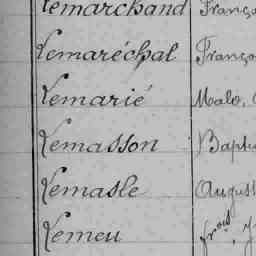 Lemarchand Franço
Lemaréchal Franço
Lemarié Malo,
Lemasson Bapti
Lemasle August
Lemeu frois,